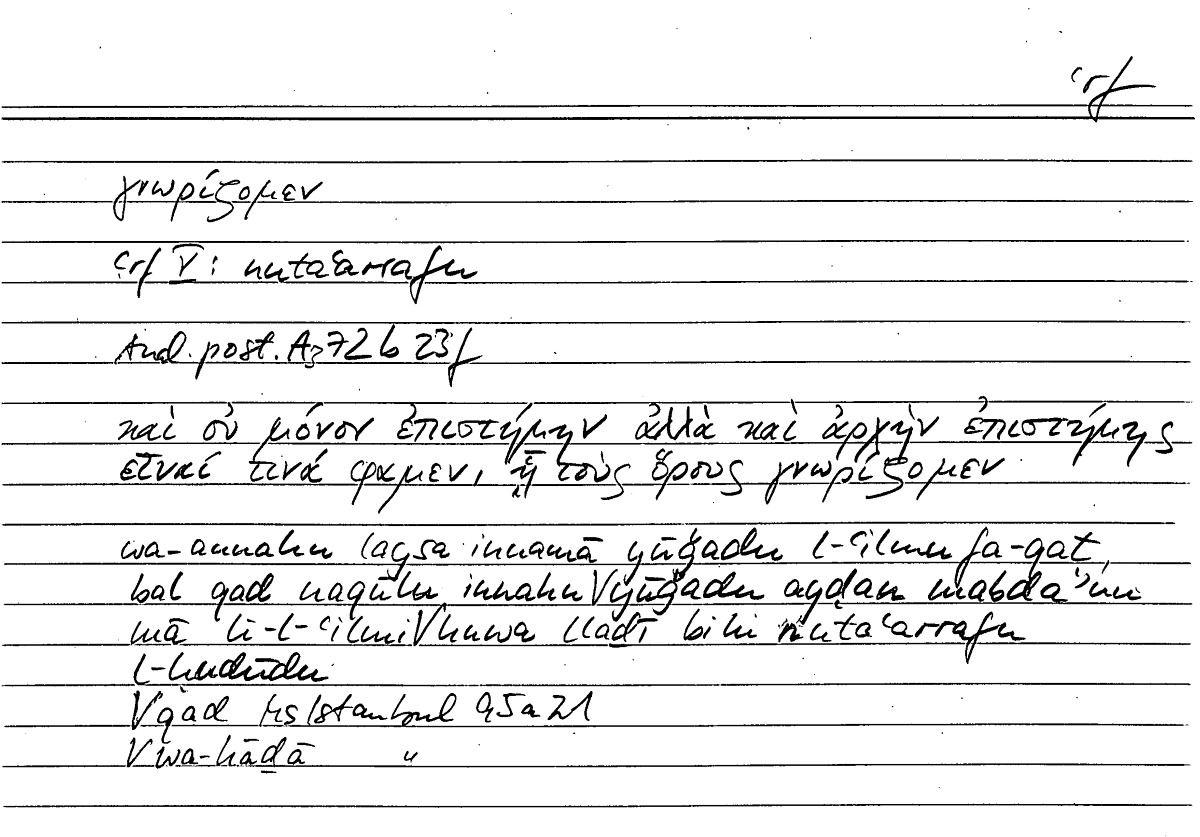 ʿrf
γνωρίζομεν
ʿrf V: nutaʿarrafu
Anal. post. A3 72 b 23 f
καὶ οὐ μόνον ἐπιστήμην ἀλλὰ καὶ ἀρχὴν ἐπιστήμης
εἶναί τινά φαμεν, ᾗ τοὺς ὅρους γνωρίζομεν
wa-annahu laysa innamā yūǧadu l-ʿilmu fa-qaṭ,
bal qad naqūlu innahu V yūǧadu ayḍan mabdaʾun
mā li-l-ʿilmi V huwa lladī bihi nutaʿarrafu
l-ḥudūdu
V qad Ms Istanbul 95a21
V wa-hāḏā "